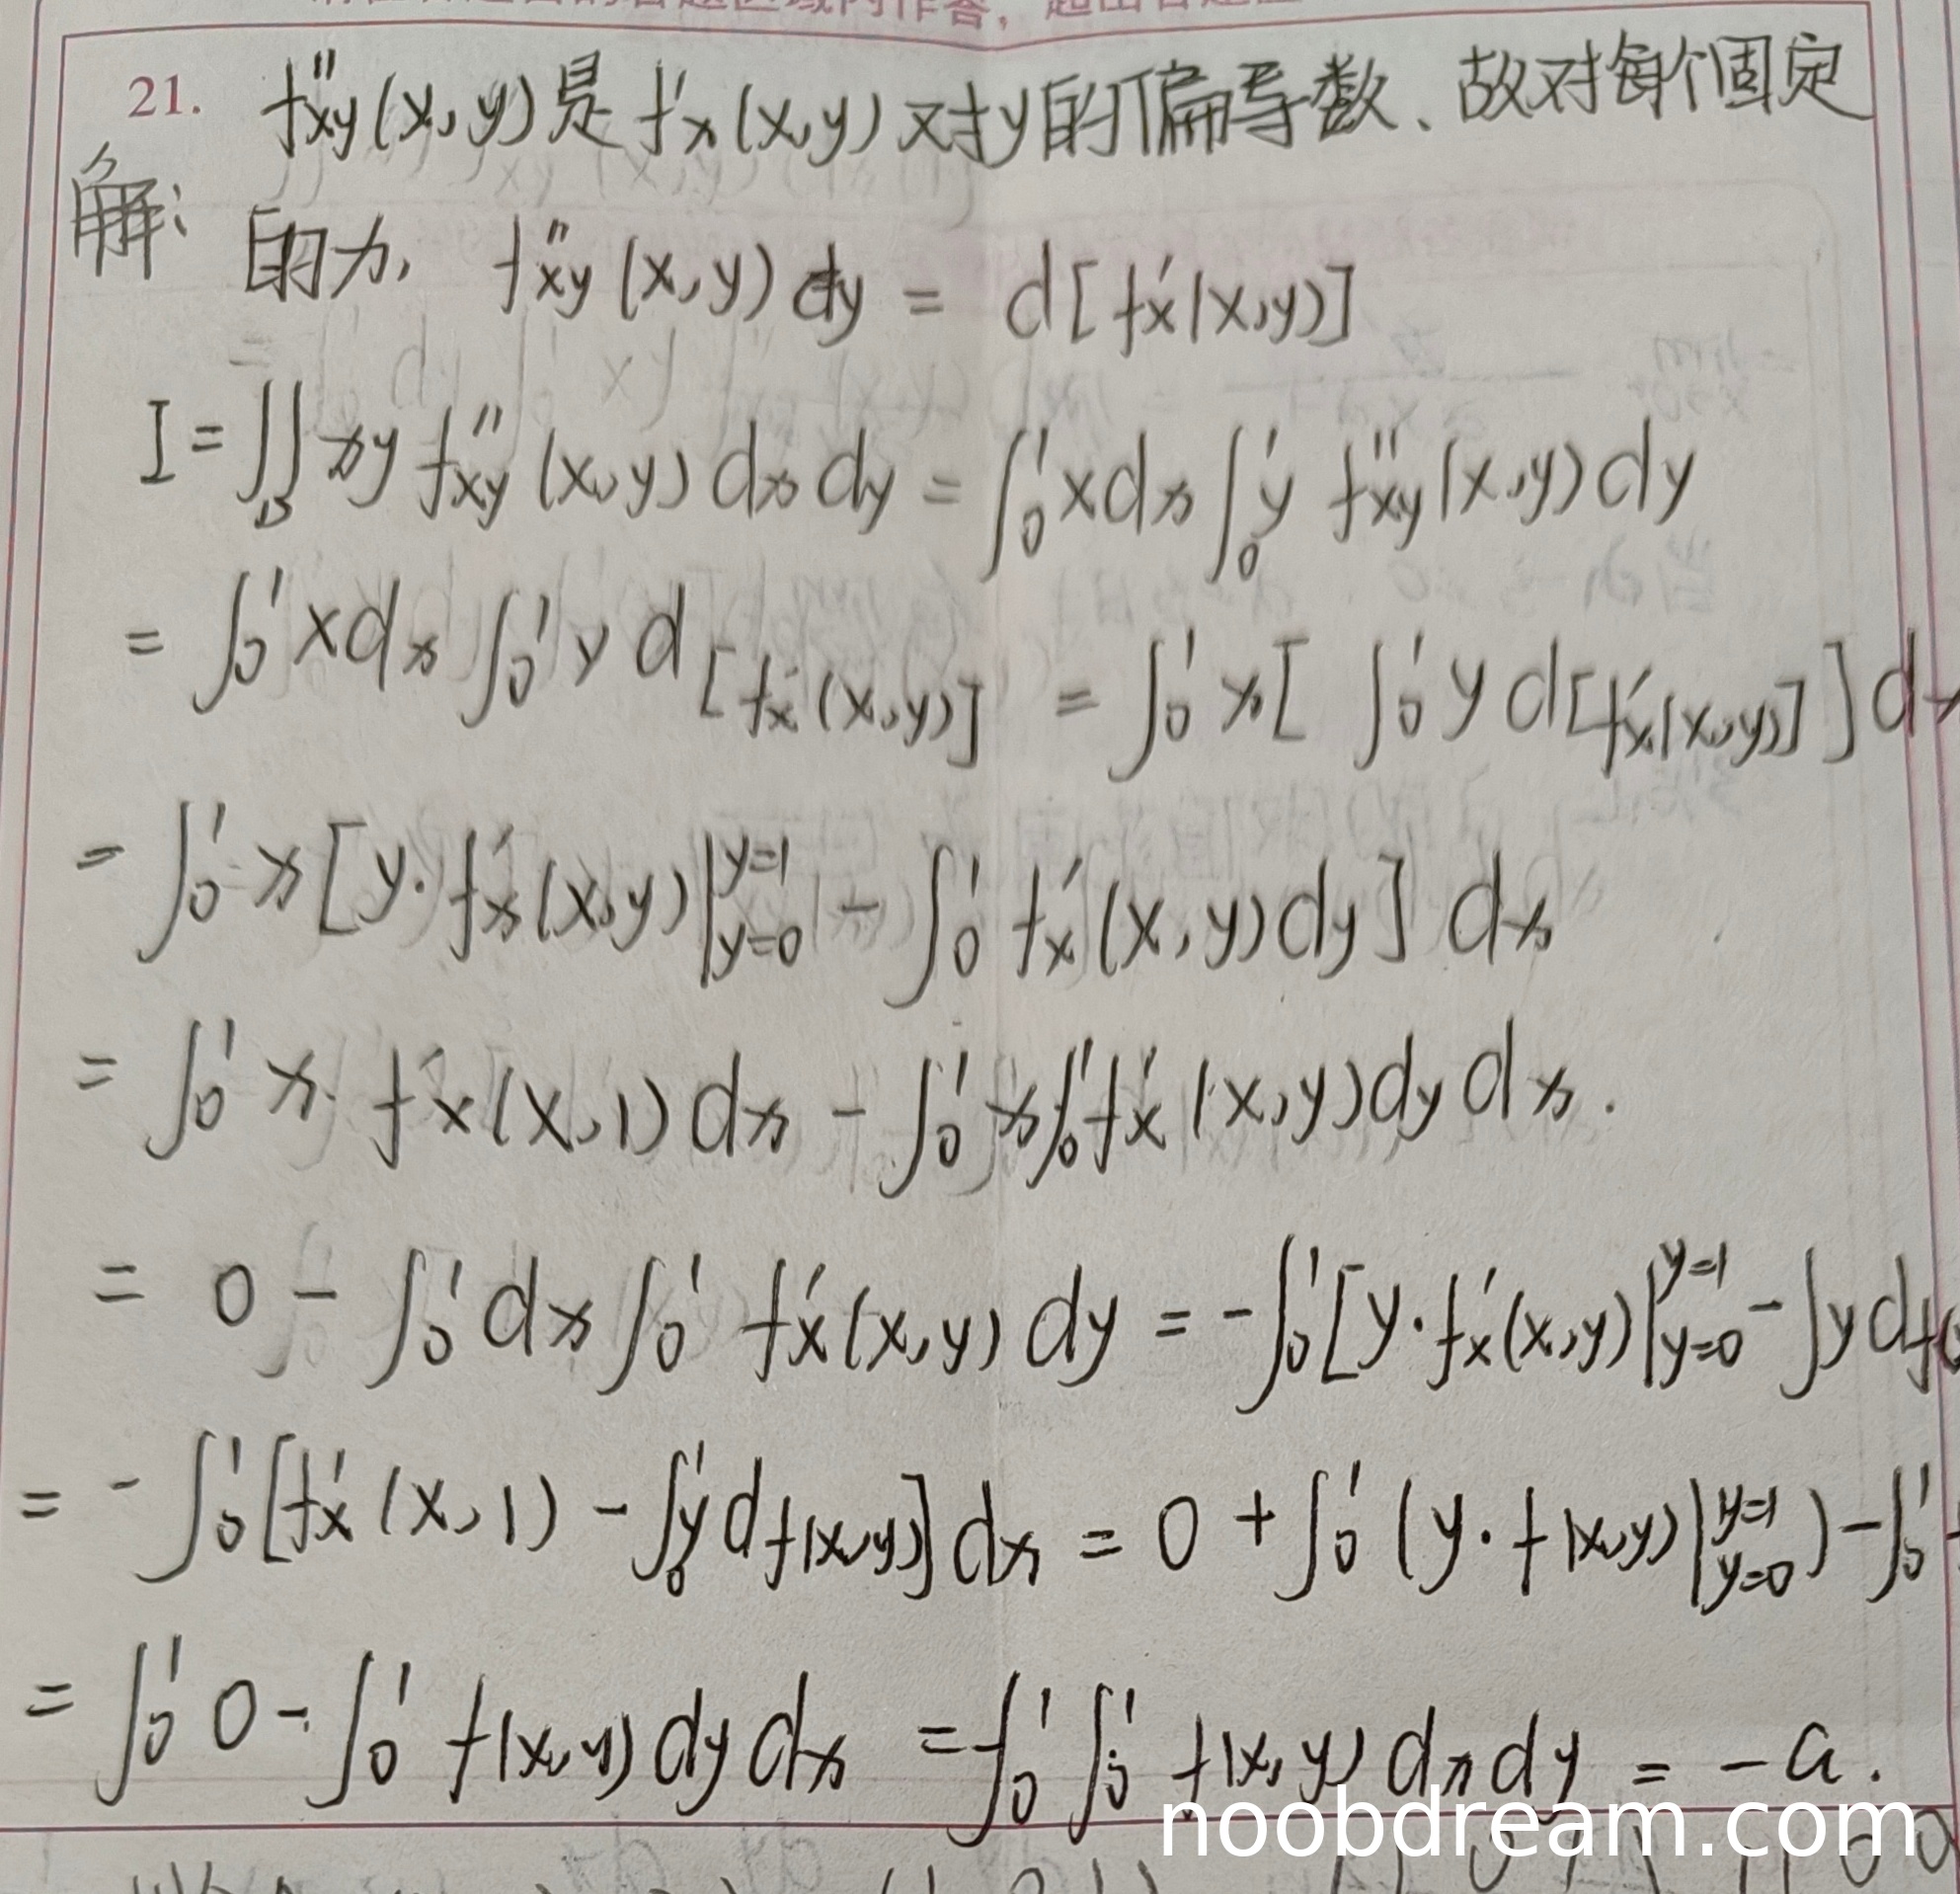 21. f''xy(x,y)是f'x(x,y)对y的偏导数、故对每个固定
解: 的 f''xy(x,y)dy = d[f'x(x,y)]
I = ∬_D xy f''xy(x,y)dxdy = ∫₀¹xdx∫₀¹y f''xy(x,y)dy
= ∫₀¹xdx∫₀¹yd[f'x(x,y)] = ∫₀¹x[∫₀¹yd[f'x(x,y)]]dx
= ∫₀¹x[y·f'x(x,y)|_{y=0}^{y=1} - ∫₀¹f'x(x,y)dy]dx
= ∫₀¹x·f'x(x,1)dx - ∫₀¹x∫₀¹f'x(x,y)dydx.
= 0 - ∫₀¹dx∫₀¹f'x(x,y)dy = -∫₀¹[y·f'x(x,y)|_{y=0}^{y=1} - ∫ydf(
= -∫₀¹[f'x(x,1) - ∫₀¹ydf(x,y)]dx = 0 + ∫₀¹(y·f(x,y)|_{y=0}^{y=1}) - ∫₀¹
= ∫₀¹0 - ∫₀¹f(x,y)dydx = -∫₀¹∫₀¹f(x,y)dxdy = -a.
noobdream.com